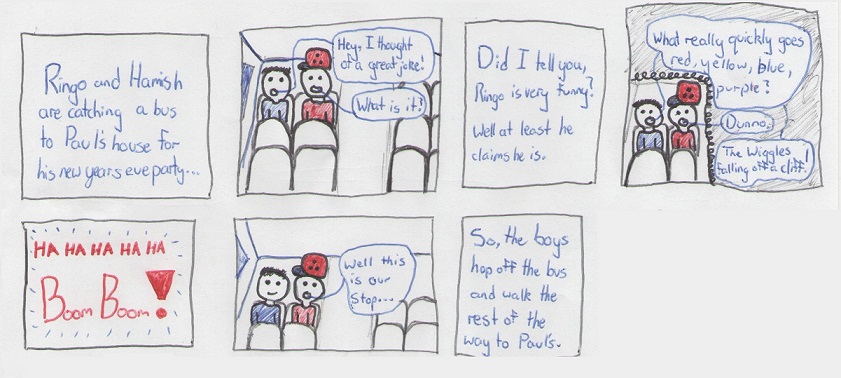 Ringo and Hamish
are catching a bus
to Paul's house for
his new years eve party...
Hey, I thought
of a great joke!
What is it?
Did I tell you,
Ringo is very funny?
Well at least he
claims he is.
What really quickly goes
red, yellow, blue,
purple?
Dunno.
The Wiggles
falling off a cliff!
HA HA HA HA HA
Boom Boom!
Well this
is our
stop...
So, the boys
hop off the bus
and walk the
rest of the
way to Paul's.